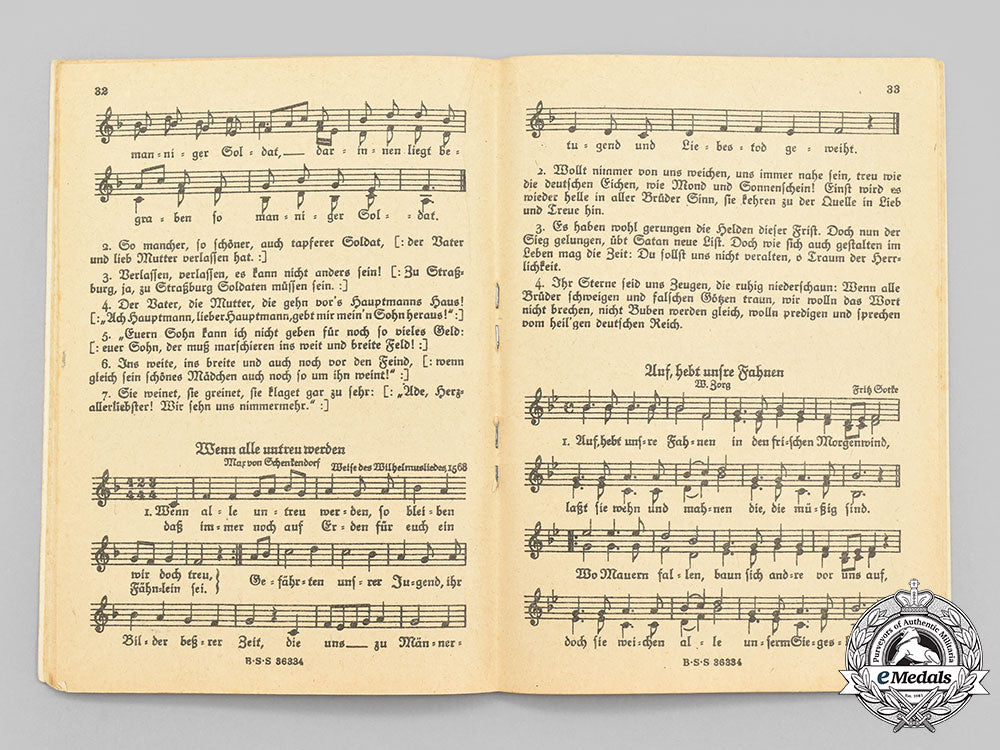 32
man-ni-ger Sol-dat, dar-in-nen liegt be-
gra-ben so man-ni-ger Sol-dat.
2. So mancher, so schöner, auch tapferer Soldat, [: der Vater
und lieb Mutter verlassen hat. :]
3. Verlassen, verlassen, es kann nicht anders sein! [: Zu Straß-
burg, ja, zu Straßburg Soldaten müssen sein. :]
4. Der Vater, die Mutter, die gehn vor's Hauptmanns Haus!
[: „Ach Hauptmann, lieber Hauptmann, gebt mir mein'n Sohn heraus!“ :]
5. „Euern Sohn kann ich nicht geben für noch so vieles Geld:
[: euer Sohn, der muß marschieren ins weit und breite Feld! :]
6. Ins weite, ins breite und auch noch vor den Feind, [: wenn
gleich sein schönes Mädchen auch noch so um ihn weint!“ :]
7. Sie weinet, sie greinet, sie klaget gar zu sehr: [: „Ade, Herz-
allerliebster! Wir sehn uns nimmermehr.“ :]
Wenn alle untreu werden
Max von Schenkendorf Weise des Wilhelmusliedes, 1568
1. Wenn al-le un-treu wer-den, so blei-ben
daß im-mer noch auf Er-den für euch ein
wir doch treu, } Ge-fähr-ten uns-rer Ju-gend, ihr
Fähnlein sei.
Bil-der beß-rer Zeit, die uns zu Män-ner-
B·S·S 36334
33
tu-gend und Lie-bes-tod ge-weiht.
2. Wollt nimmer von uns weichen, uns immer nahe sein, treu wie
die deutschen Eichen, wie Mond und Sonnenschein! Einst wird es
wieder helle in aller Brüder Sinn, sie kehren zu der Quelle in Lieb
und Treue hin.
3. Es haben wohl gerungen die Helden dieser Frist. Doch nun der
Sieg gelungen, übt Satan neue List. Doch wie sich auch gestalten im
Leben mag die Zeit: Du sollst uns nicht veralten, o Traum der Herr-
lichkeit.
4. Ihr Sterne seid uns Zeugen, die ruhig niederschaun: Wenn alle
Brüder schweigen und falschen Götzen traun, wir wolln das Wort
nicht brechen, nicht Buben werden gleich, wolln predigen und sprechen
vom heil'gen deutschen Reich.
Auf, hebt unsre Fahnen
W. Zorg Fritz Sotke
1. Auf, hebt uns-re Fah-nen in den fri-schen Morgenwind,
laßt sie wehn und mah-nen die, die mü-ßig sind.
Wo Mauern fal-len, baun sich and-re vor uns auf,
doch sie wei-chen al-le un-serm Sie-ges-
B·S·S 36334
Purveyors of Authentic Militaria
eMedals